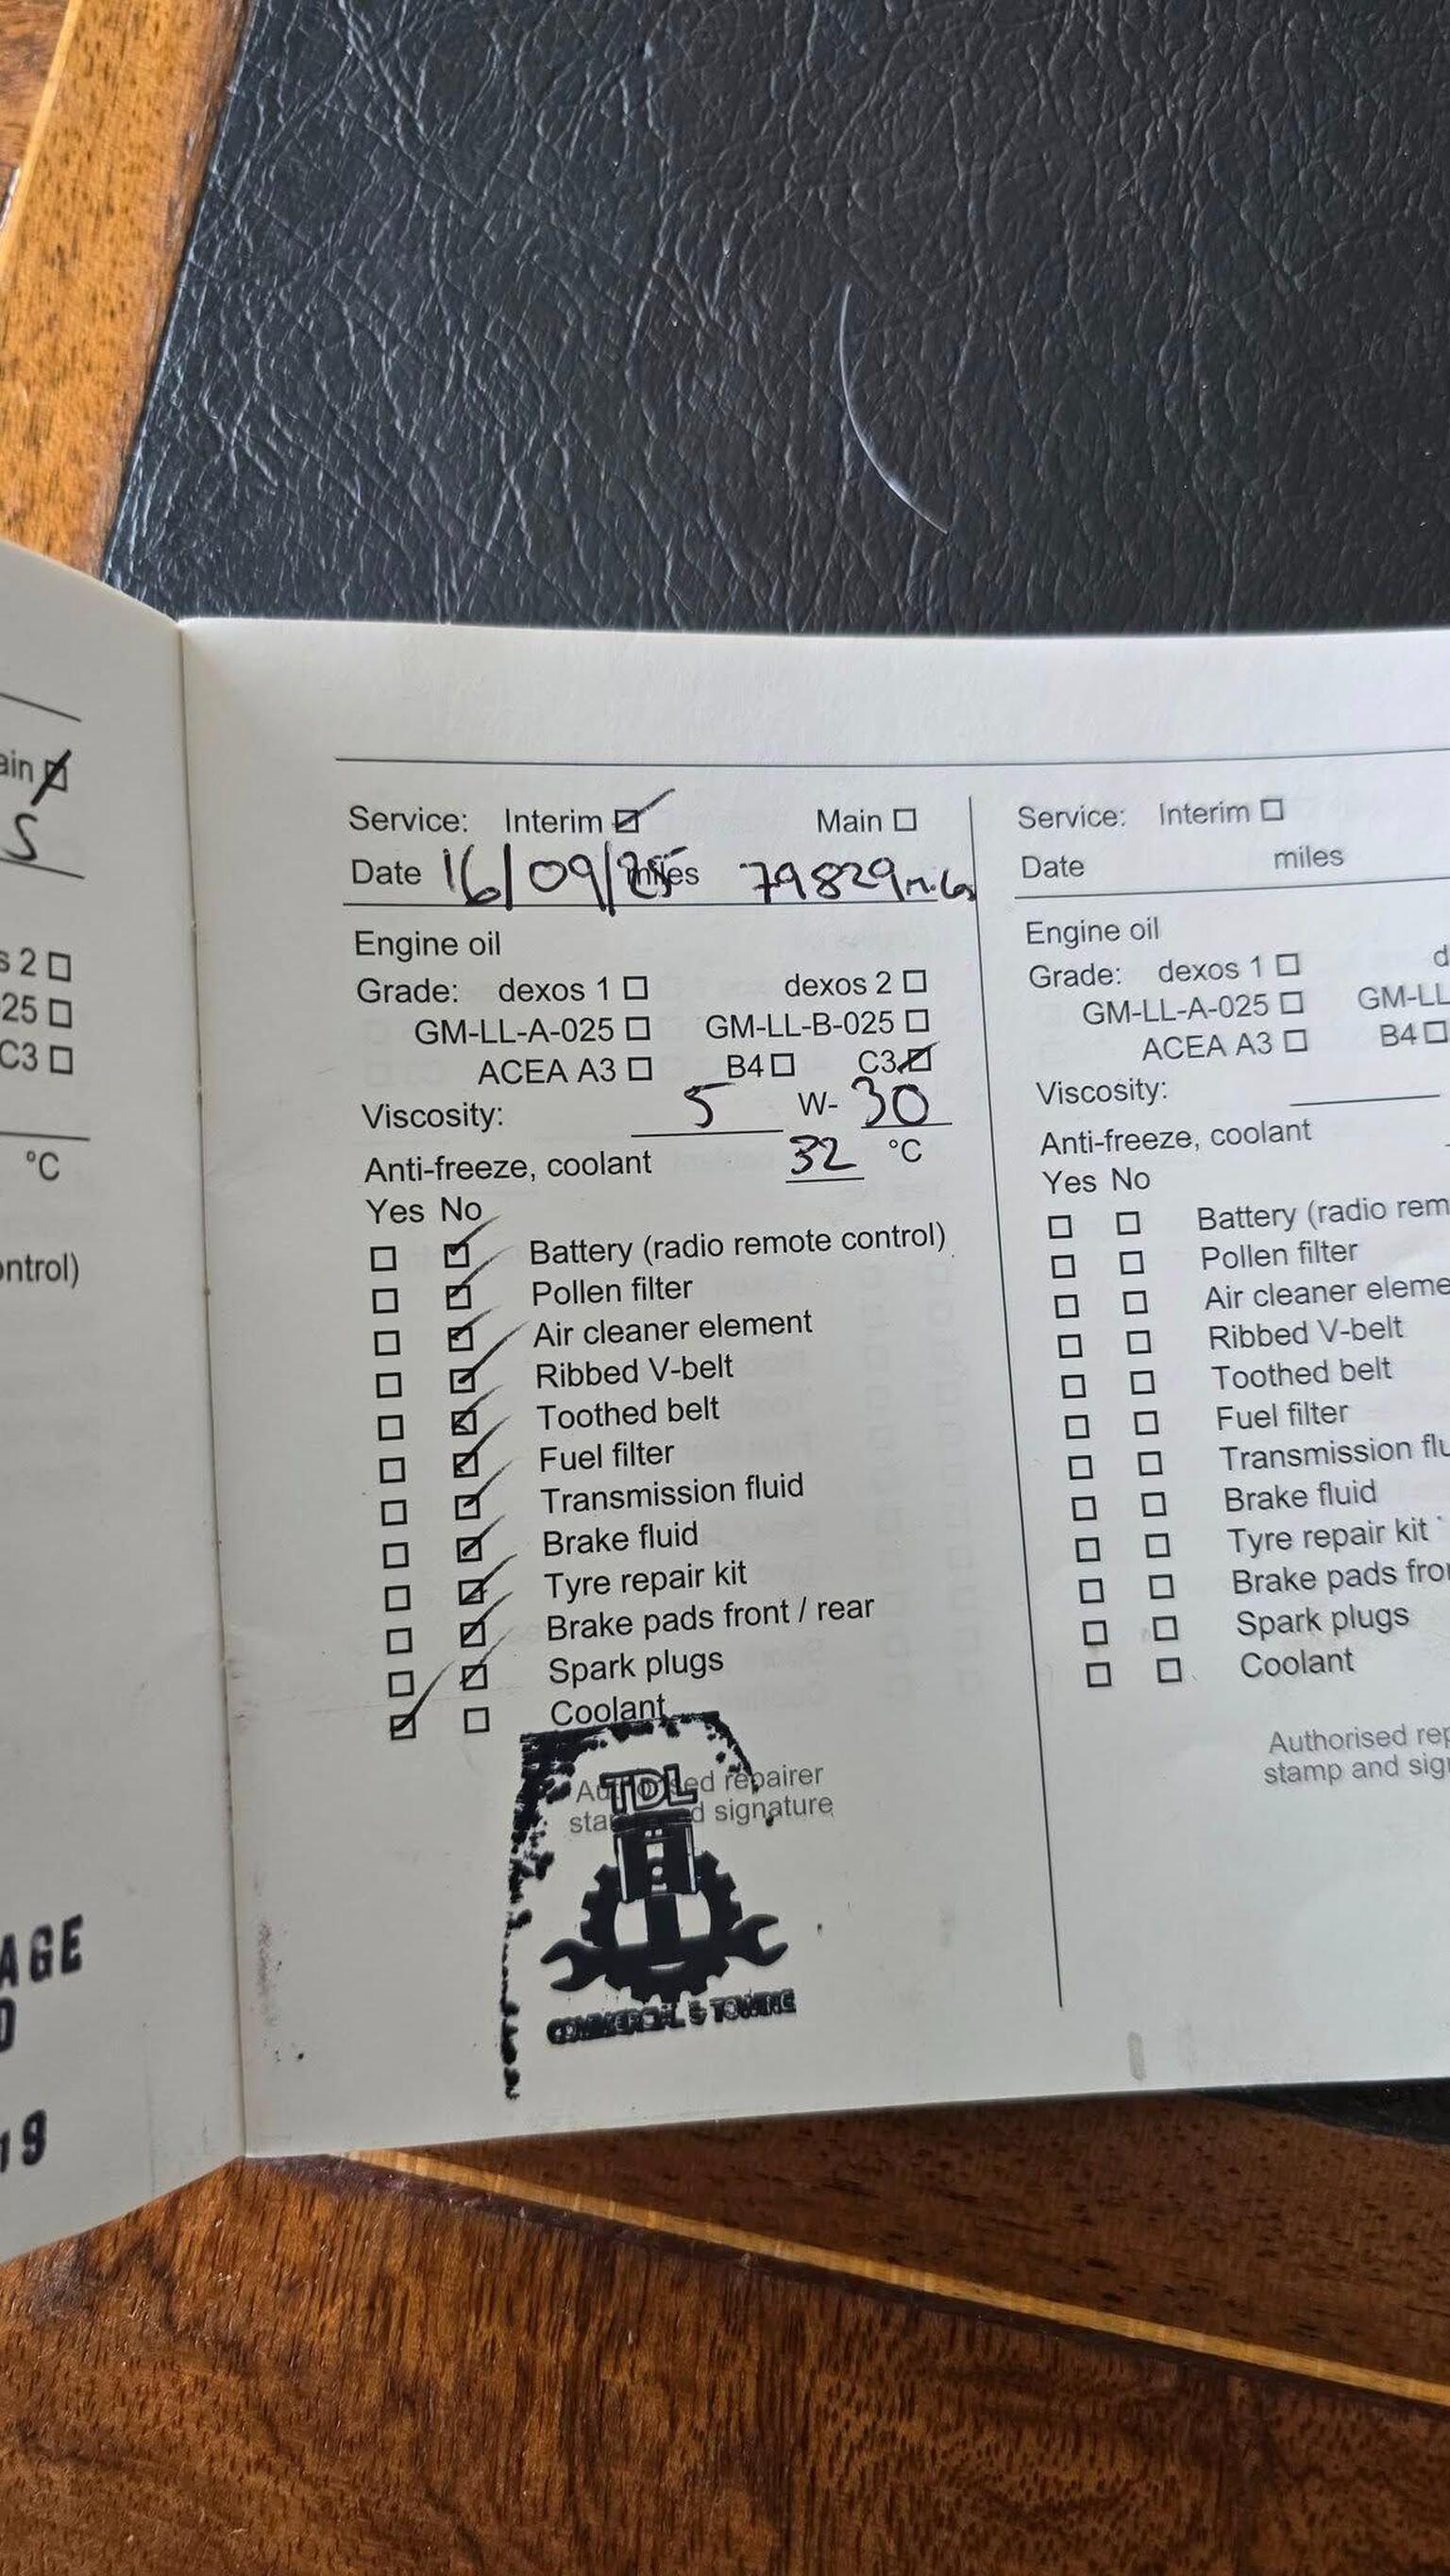 ain
S
s 2
25
C3
°C
ontrol)
AGE
19
Service: Interim Main
Date 16/09/25 miles 79829 miles
Engine oil
Grade: dexos 1 dexos 2
GM-LL-A-025 GM-LL-B-025
ACEA A3 B4 C3
Viscosity: 5 W- 30
Anti-freeze, coolant 32 °C
Yes No
Battery (radio remote control)
Pollen filter
Air cleaner element
Ribbed V-belt
Toothed belt
Fuel filter
Transmission fluid
Brake fluid
Tyre repair kit
Brake pads front / rear
Spark plugs
Coolant
Authorised repairer
stamp and signature
TDL
COMMERCIAL & TOWING
Service: Interim
Date miles
Engine oil
Grade: dexos 1 d
GM-LL-A-025 GM-LL
ACEA A3 B4
Viscosity:
Anti-freeze, coolant
Yes No
Battery (radio rem
Pollen filter
Air cleaner eleme
Ribbed V-belt
Toothed belt
Fuel filter
Transmission flu
Brake fluid
Tyre repair kit
Brake pads fro
Spark plugs
Coolant
Authorised rep
stamp and sig